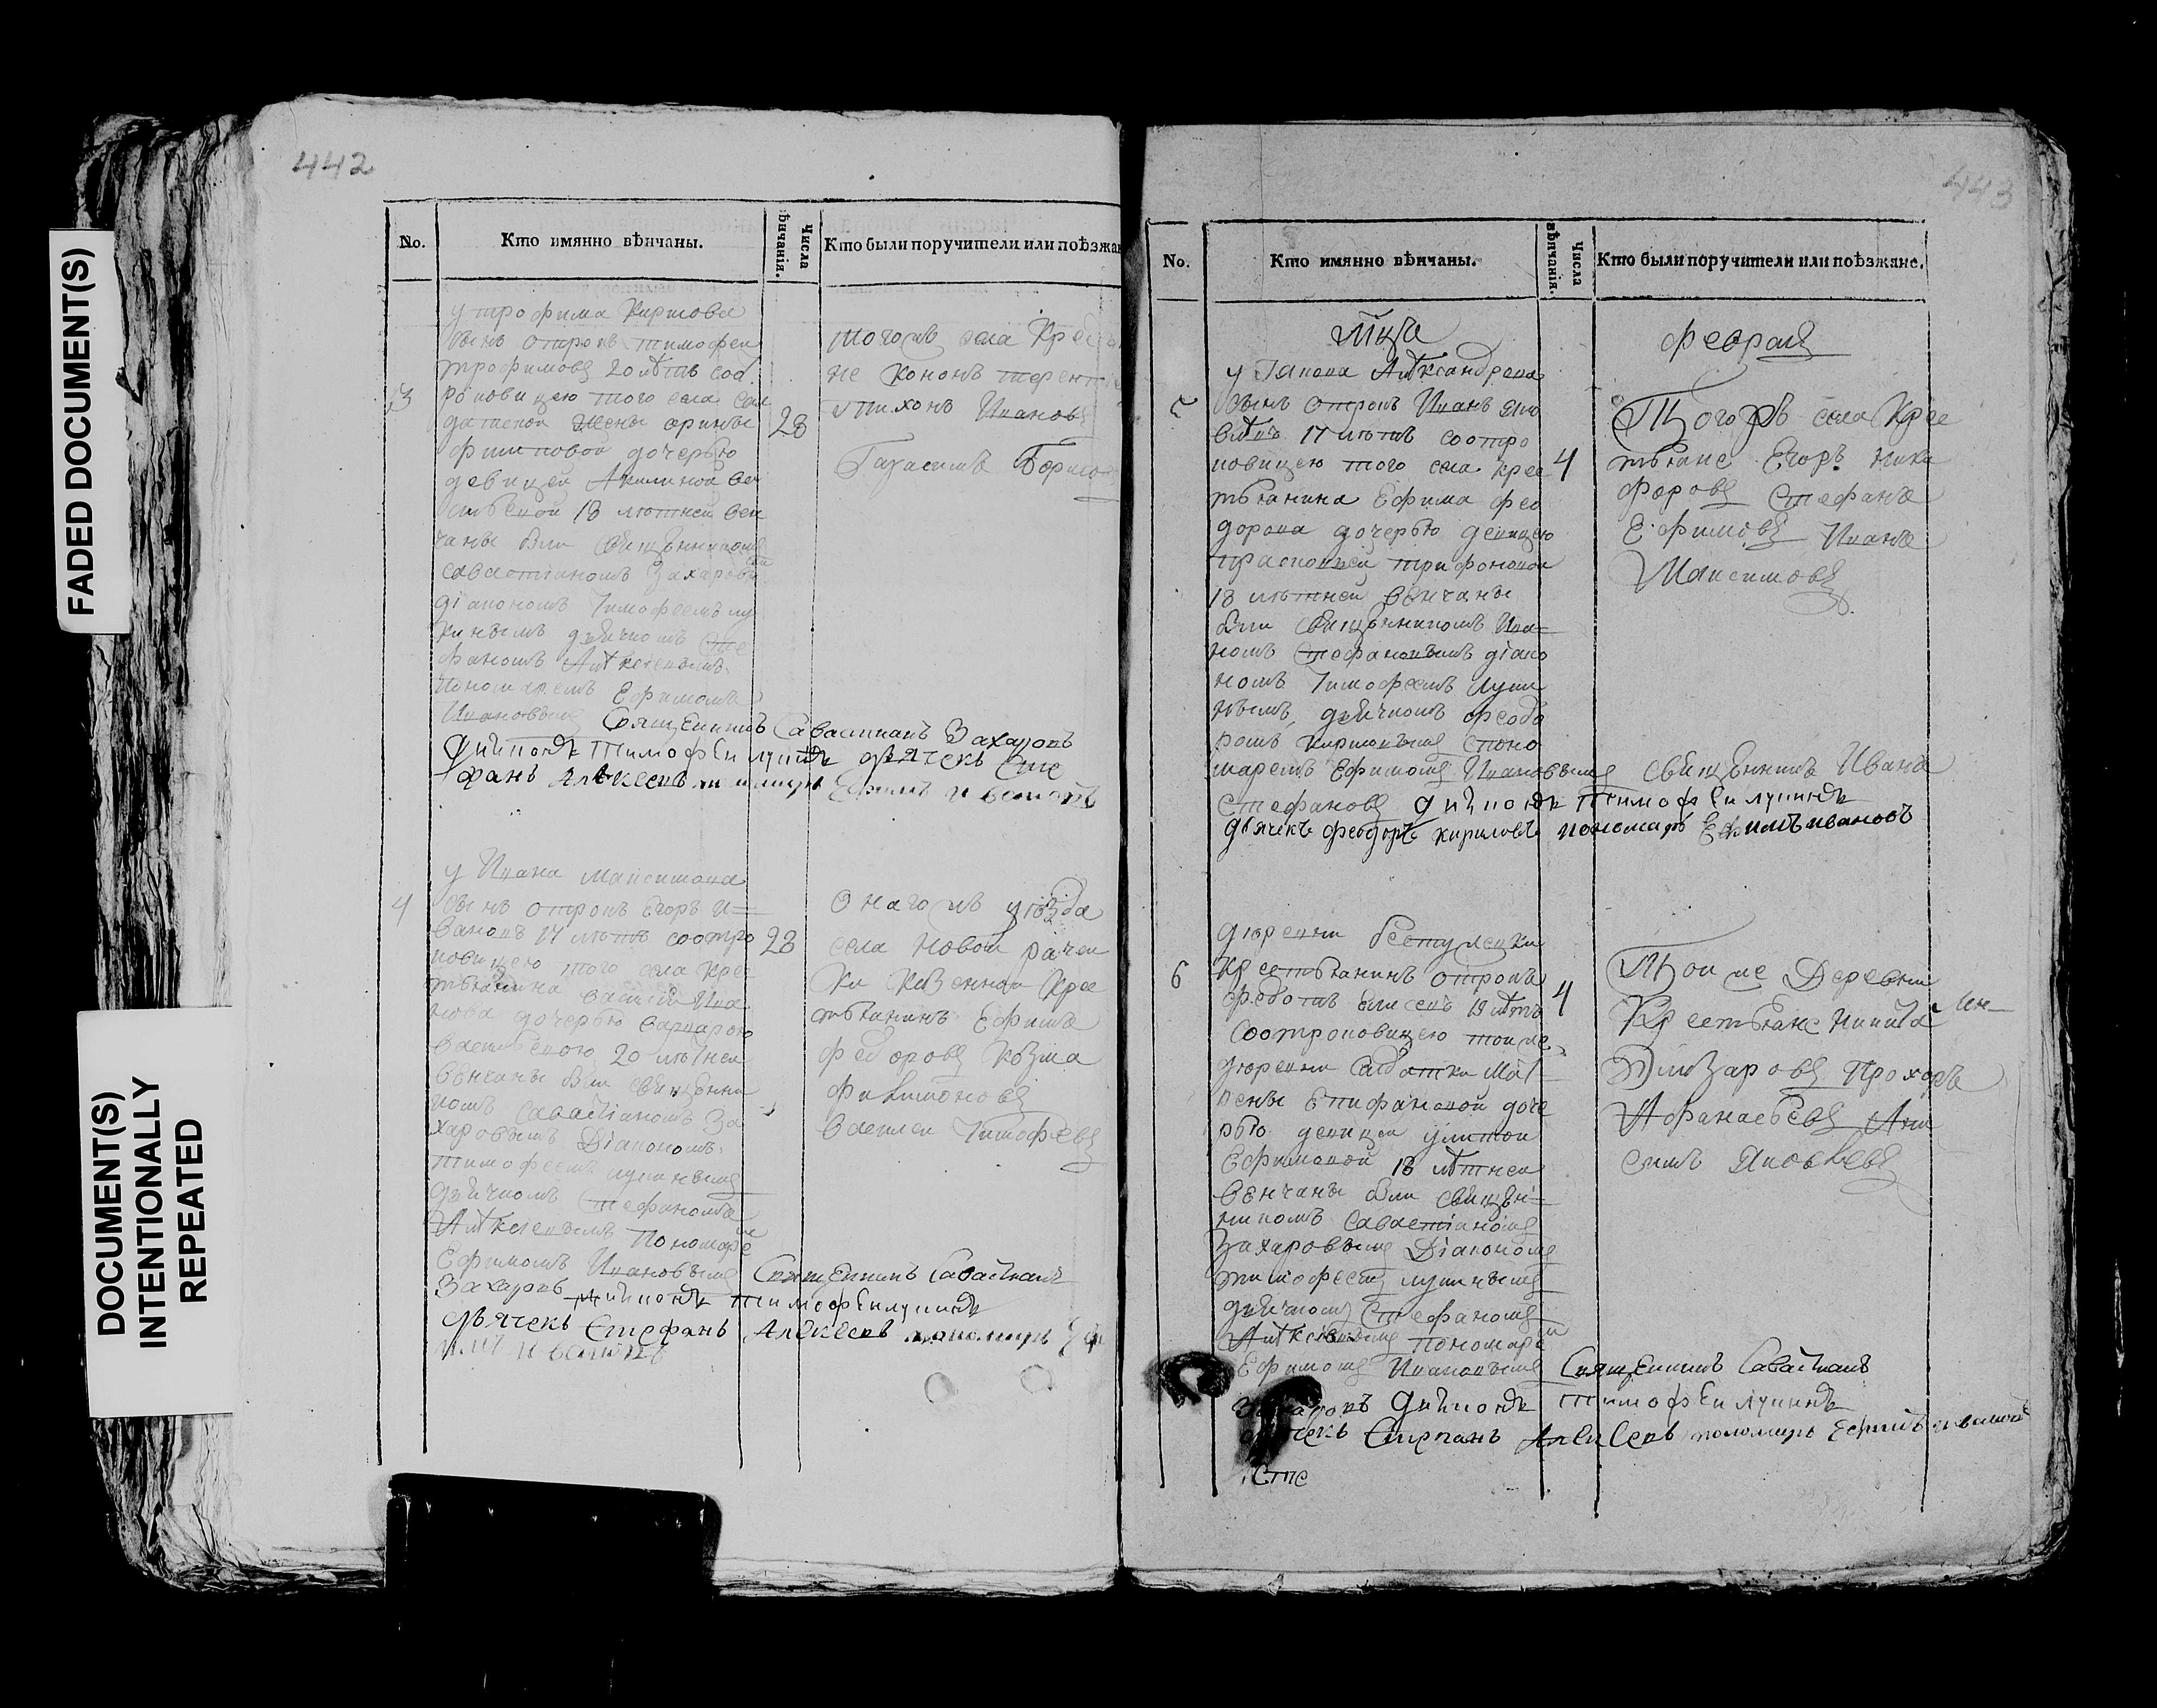 FADED DOCUMENT(S)
DOCUMENT(S)
INTENTIONALLY
REPEATED
442
No.
Кто имянно вѣнчаны.
Числа
вѣнчанія.
Кто были поручители или поѣзжан
у трофима Кирилова
сынъ отрокъ тимофеи
трофимовъ 20 лѣтъ сот
3
роковицею того села сол
датской жены орины
28
филиповой дочерью
девицеи Акилиной ва
сильевой 18 лѣтней вен
чаны были священникомъ
савастіаномъ Захаровы
діакономъ Тимофеемъ лу
кинымъ дьячкомъ Сте
фаномъ Алѣксеевымъ
пономаремъ Ефимомъ
Ивановымъ Священникъ Савастианъ Захаровъ
Диаконъ Тимофеи лукинъ дьячекъ Сте
фанъ Алексеевъ пономарь Ефимъ ивановъ
тогожъ села Крес
не Кононъ терен
тихонъ Ивановъ
Гарасимъ Борисо
у Ивана Максимова
4
сынъ отрокъ Егоръ И=
вановъ 17 лѣтъ соотро
28
ковицею того села Крес
тьянина василия Ива
нова дочерью варварою
васильевою 20 лѣтнеи
венчаны были священни
комъ Савастіаномъ За
харовымъ Діакономъ
тимофеемъ лукинымъ
дьячкомъ Стефаномъ
Алѣксеевымъ пономаре
Ефимомъ Ивановымъ Священникъ Савастианъ
Захаровъ диаконъ тимофеи лукинъ
дьячекъ Стефанъ Алексеевъ пономарь Еф
имъ ивановъ
Онагожъ уѣзда
села Новой рачеи
ки Казеннои Крес
тьянинъ Ефимъ
федоровъ Козма
Филимоновъ
василеи Тимофеевъ
443
No.
Кто имянно вѣнчаны.
Числа
вѣнчанія.
Кто были поручители или поѣзжане.
Мца
февраля
у Іакова Алѣксандрова
5
сынъ отрокъ Иванъ Яко
влѣвъ 17 лѣтъ соотро
ковицею того села крес
4
тьянина Ефима фео
дорова дочерью девицею
прасковьеи трифоновои
18 лѣтнеи венчаны
были священникомъ Ива=
номъ Стефановымъ діако
номъ Тимофеемъ Луки
нымъ, дьячкомъ феодо
ромъ кириловымъ споно
маремъ Ефимомъ Ивановымъ священникъ Иванъ
Стефановъ диаконъ тимофеи лукинъ
дьячекъ феодоръ кириловъ пономарь Ефимъ ивановъ
Тогожъ села Крес
тьяне Егоръ Ники
форовъ Стефанъ
Ефимовъ Иванъ
Максимовъ
деревни
6
Крестьянинъ отрокъ
19 лѣтъ
4
соотроковицею тоиже
деревни Салдатки Мат
рены Епифановой доче
рью девицеи улитои
Ефимовой 18 лѣтнеи
венчаны были священ=
никомъ Савастіаномъ
Захаровымъ Діакономъ
тимофеемъ лукинымъ
дьячкомъ Стефаномъ
Алѣксеевымъ пономаре
Ефимомъ Ивановымъ Священникъ Савастианъ
Захаровъ диаконъ тимофеи лукинъ
дьячекъ Степанъ Алексеевъ пономарь Ефимъ ивановъ
Сте
Тоиже Деревни
Крестьяне Никита
Прохоръ
Афанасьевъ
Яковлевъ